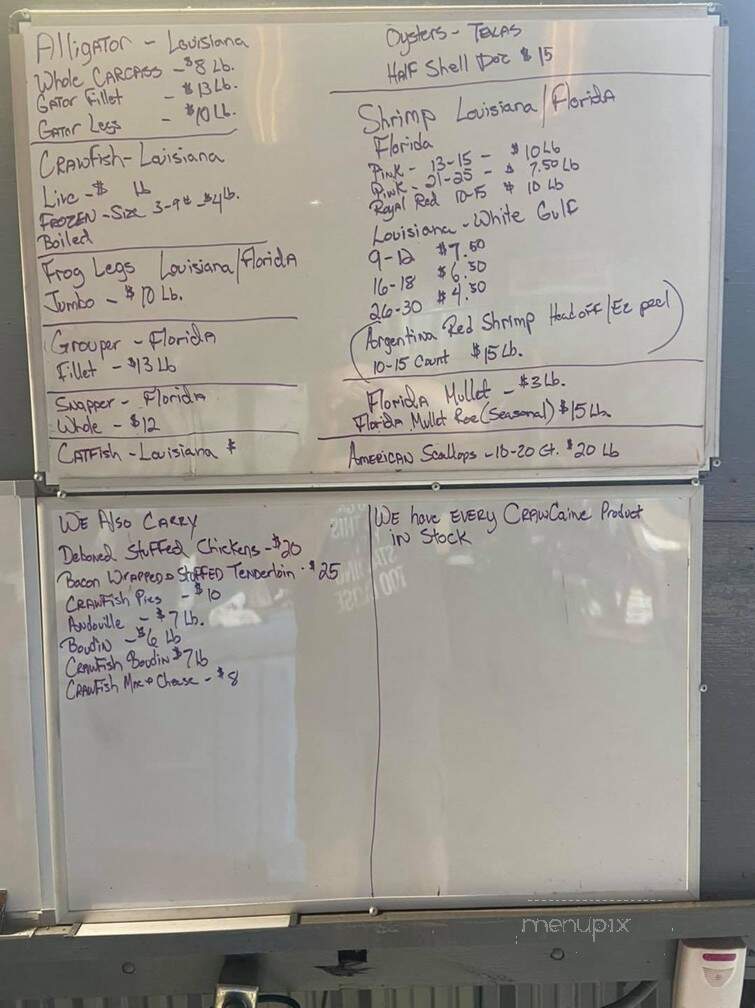 Alligator - Louisiana
Whole Carcass - $8 Lb.
Gator Fillet - $13 Lb.
Gator Legs - $10 Lb.
Crawfish - Louisiana
Live - $ lb
Frozen - Size 3-9# - $4 lb.
Boiled
Frog Legs Louisiana/Florida
Jumbo - $10 Lb.
Grouper - Florida
Fillet - $13 Lb
Snapper - Florida
Whole - $12
Catfish - Louisiana $
Oysters - Texas
Half Shell Doz $15
Shrimp Louisiana/Florida
Florida
Pink - 13-15 - $10 Lb
Pink - 21-25 - $7.50 Lb
Royal Red 10-15 $10 Lb
Louisiana - White Gulf
9-12 $7.50
16-18 $6.50
26-30 $4.50
(Argentina Red Shrimp Head off/Ez peel
10-15 Count $15 Lb.)
Florida Mullet - $3 Lb.
Florida Mullet Roe (Seasonal) $15 Lb
American Scallops - 10-20 Ct. $20 Lb
We Also Carry
Deboned Stuffed Chickens - $20
Bacon Wrapped & Stuffed Tenderloin - $25
Crawfish Pies - $10
Andouille - $7 Lb.
Boudin - $6 Lb
Crawfish Boudin $7 lb
Crawfish Mac & Cheese - $8
We have Every CrawCaine Product
in Stock
menupix